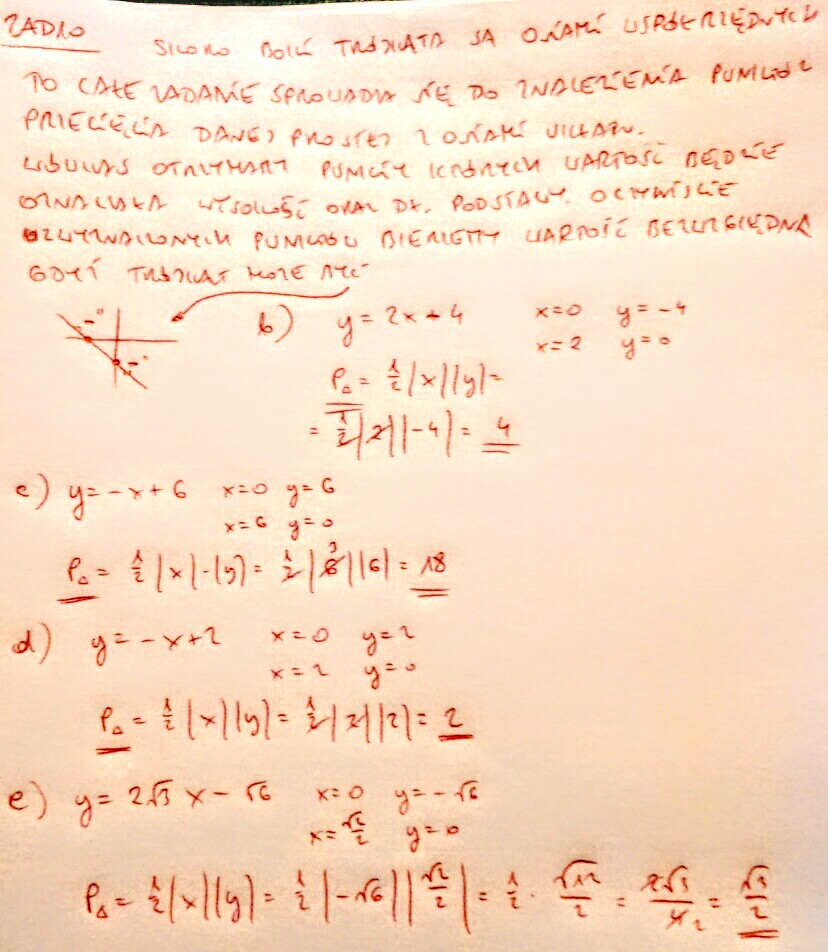 ZAD10
SKORO BOKI TRÓJKĄTA SĄ OSIAMI WSPÓŁRZĘDNYCH
TO CAŁE ZADANIE SPROWADZA SIĘ DO ZNALEZIENIA PUNKTÓW
PRZECIĘCIA DANEJ PROSTEJ Z OSIAMI UKŁADU.
WÓWCZAS OTRZYMAMY PUNKTY KTÓRYCH WARTOŚĆ BĘDZIE
OZNACZAŁA WYSOKOŚĆ ORAZ DŁ. PODSTAWY. OCZYWIŚCIE
Z WYZNACZONYCH PUNKTÓW BIERZEMY WARTOŚĆ BEZWZGLĘDNĄ
GDYŻ TRÓJKĄT MOŻE BYĆ
"-" "-"
b) y = 2x - 4 x=0 y=-4
x=2 y=0
P△ = 1/2 |x||y| =
= 1/2 |2||-4| = 4
c) y = -x + 6 x=0 y=6
x=6 y=0
P△ = 1/2 |x|·|y| = 1/2 |6|³ |6| = 18
d) y = -x + 2 x=0 y=2
x=2 y=0
P△ = 1/2 |x||y| = 1/2 |2||2| = 2
e) y = 2√3 x - √6 x=0 y=-√6
x=√2/2 y=0
P△ = 1/2 |x||y| = 1/2 |-√6| |√2/2| = 1/2 · √12/2 = 2√3/4 2 = √3/2